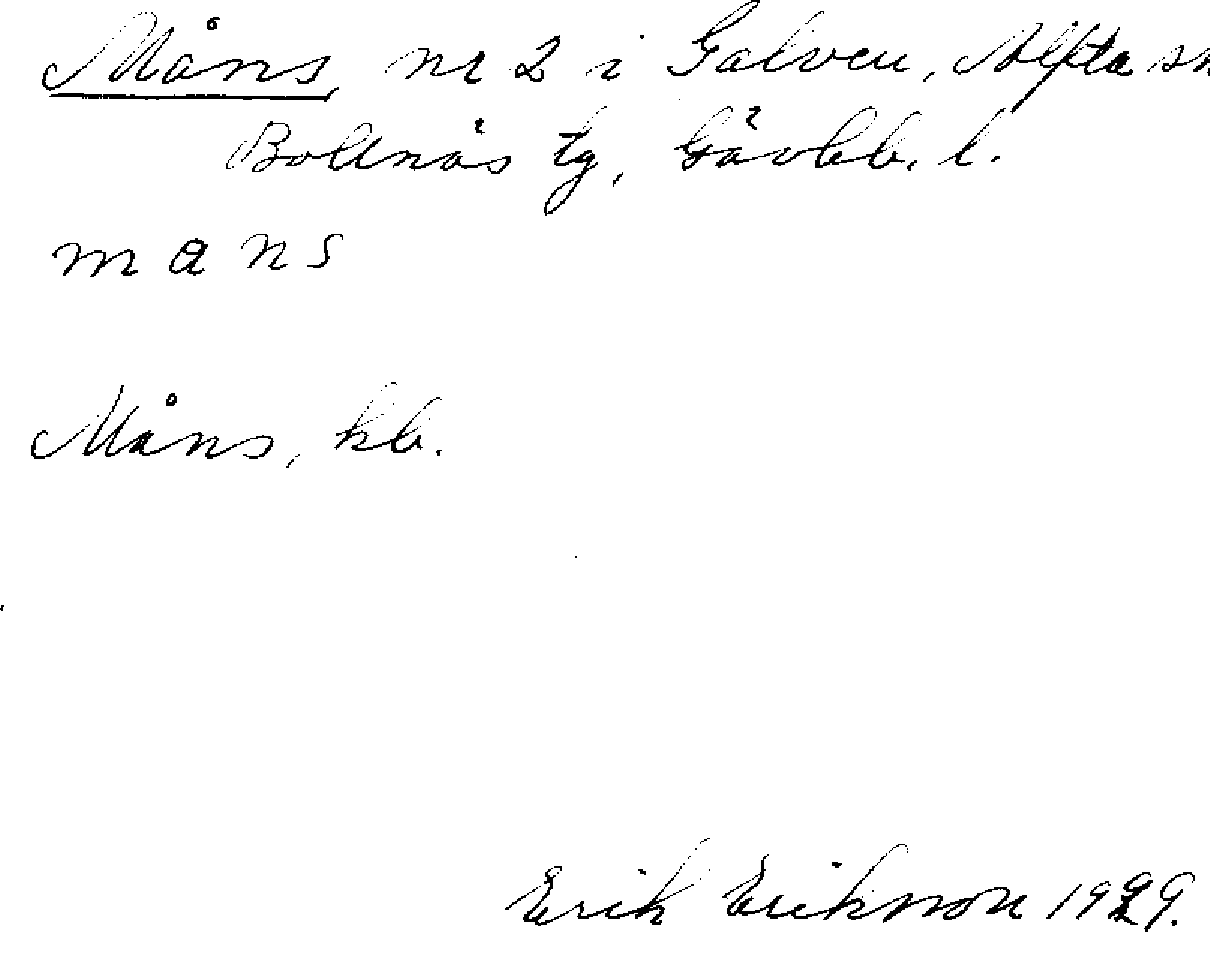 Måns, nr 2 i Galven, Alfta sn
Bollnäs tg, Gävleb. l.
m a n s
Måns, kb.
Erik Erikson 1929.